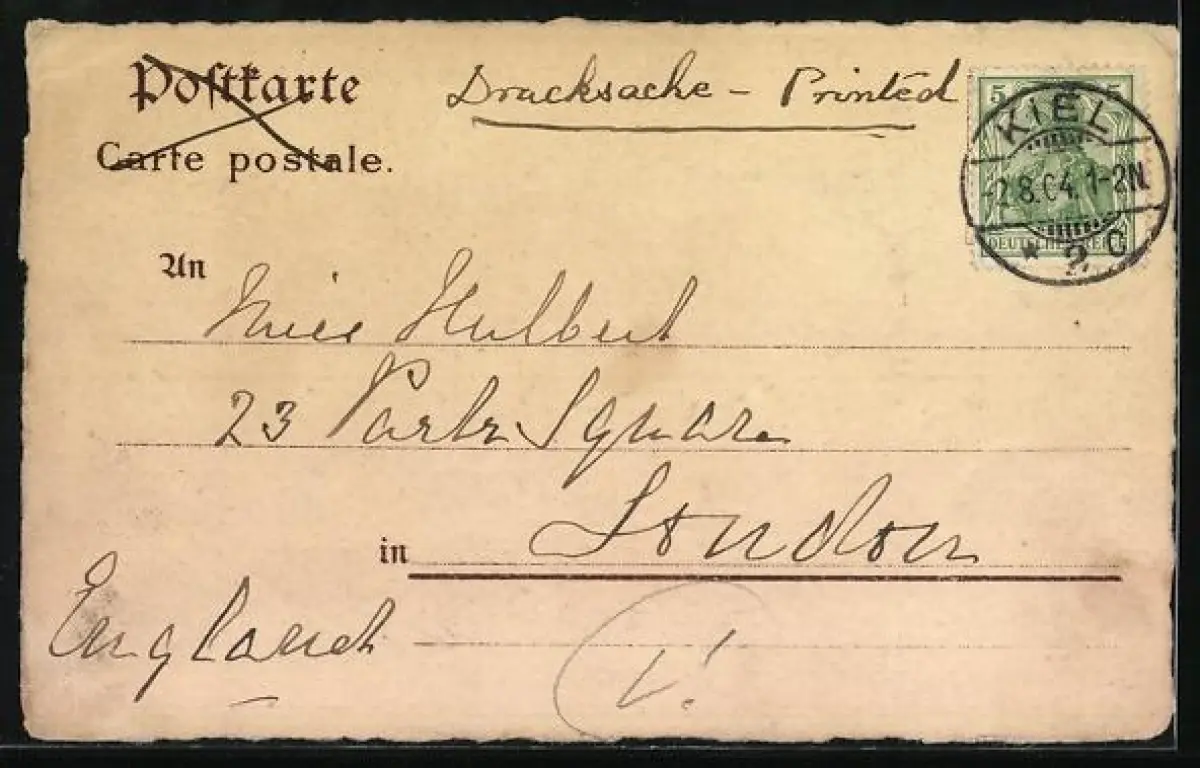 Postkarte
Drucksache - Printed
Carte postale.
5 5
KIEL
-2.8.04.1-2N
DEUTSCHES REICH
* 2 C
An
Miss Hulbert
23 Portr Square
London
in
England